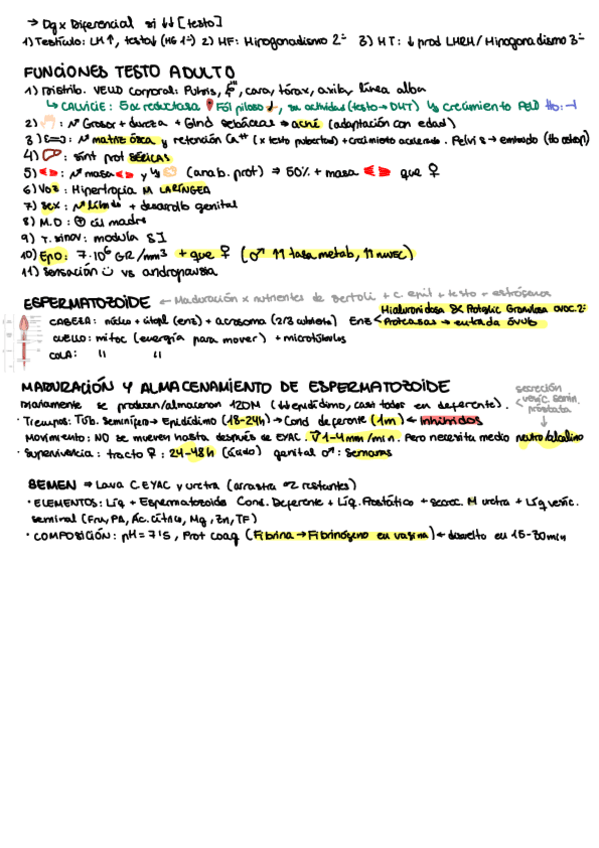 → Dgx Diferencial si ↓↓ [testo]
1) Testículo: LH↑, testo↓ (HG 1º) 2) HF: Hipogonadismo 2º 3) HT: ↓ prod LHRH / Hipogonadismo 3º
FUNCIONES TESTO ADULTO
1) Distrib. VELLO corporal: Pubis, cara, tórax, axila, línea alba
↳ CALVICIE: 5α reductasa Fól piloso, su actividad (testo → DHT) ↳ crecimiento PELO
2) : Grosor + dureza + Gland sebáceas → acné (adaptación con edad)
3) : matriz ósea y retención Ca⁺⁺ (x testo pubertad) + crecimiento acelerado. Pelvis → embudo
4) : sínt prot SÉRICAS
5) : masa y (anab. prot) ⇒ 50% + masa que ♀
6) VOZ: Hipertrofia M LARÍNGEA
7) SEX: libido + desarrollo genital
8) M.O: ⊕ cél madre
9) T. sinov: modula SI
10) EPO: 7·10⁶ GR/mm³ + que ♀ (♂ ↑↑ tasa metab, ↑↑ musc)
11) Sensación ☺ vs andropausia
ESPERMATOZOIDE ← Maduración x nutrientes de Sertoli + c. epit + testo + estrógenos
CABEZA: núcleo + citopl (enz) + acrosoma (2/3 cubierto) Enz < Hialuronidasa Proteolic Granulosa ovoc. 2º
Proteasas → entrada óvulo
CUELLO: mitoc (energía para mover) + microtúbulos
COLA: " "
MADURACIÓN Y ALMACENAMIENTO DE ESPERMATOZOIDE
Diariamente se producen/almacenan 120M (↓↓ epidídimo, casi todos en deferente).
secreción vesíc. semin. próstata
· Tiempos: Túb. Seminífero → Epidídimo (18-24h) → Cond deferente (1m) ← Inhibidos
Movimiento: NO se mueven hasta después de EYAC. V 1-4mm/min. Pero necesita medio neutro/alcalino
· Supervivencia: tracto ♀: 24-48h (ácido) genital ♂: Semanas
SEMEN ⇒ Lava C. EYAC y uretra (arrastra restantes)
· ELEMENTOS: Líq + Espermatozoide Cond. Deferente + Líq. Prostático + secrec. M uretra + Líq vesíc.
seminal (Fru, PA, Ác. Cítrico, Mg, Zn, TF)
· COMPOSICIÓN: pH = 7'5, Prot coag (Fibrina → Fibrinógeno en vagina) ← disuelto en 15-30min